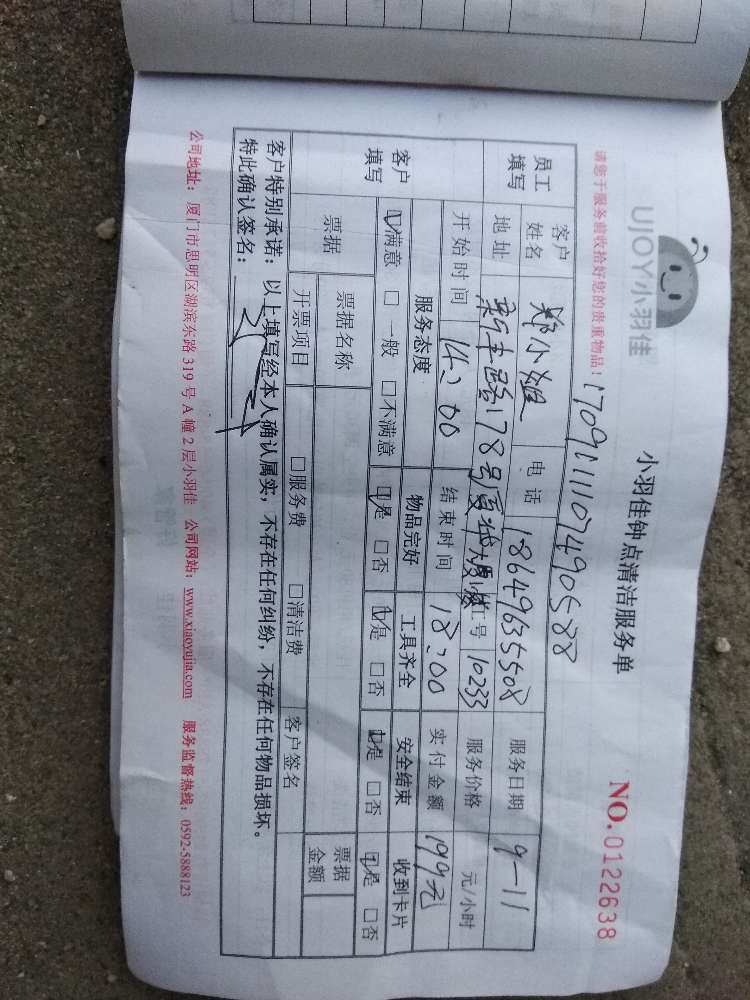 UJOY小羽佳
小羽佳钟点清洁服务单
NO.0122638
请您于服务前收拾好您的贵重物品！
员工填写
客户姓名 郑小姐 电话 18649635508 服务日期 9-11
地址 新丰路178号 工号 10233 服务价格 元/小时
开始时间 14:00 结束时间 18:00 实付金额 199元
客户填写
服务态度 物品完好 工具齐全 安全结束 收到卡片
☑满意 □一般 □不满意 ☑是 □否 ☑是 □否 ☑是 □否 ☑是 □否
票据 票据名称 票据金额
开票项目 □服务费 □清洁费 客户签名
客户特别承诺：以上填写经本人确认属实，不存在任何纠纷，不存在任何物品损坏。
特此确认签名：
公司地址：厦门市思明区湖滨东路319号A幢2层小羽佳 公司网站：www.xiaoyujia.com 服务监督热线：0592-5888123